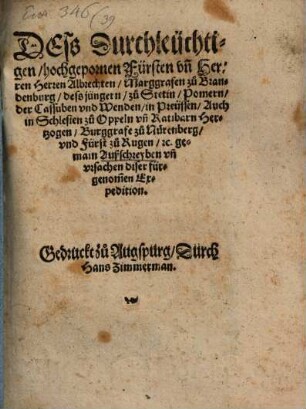 Eur 346
(39
DEss Durchleüchti-
gen / hochgepornen Fürsten vñ Her-
ren Herren Albrechten / Marggrafen zů Bran-
denburg / deß jüngern / zů Stetin / Pomern /
der Cassuben vnd Wenden / in Preüssen / Auch
in Schlesien zů Oppeln vñ Ratibarn Her-
tzogen / Burggrafe zů Nürenberg /
vnd Fürst zů Rugen / ꝛc. ge-
main Außschreyben vñ
vrsachen diser für-
genom̃en Ex-
pedition.
Gedruckt zů Augspurg / Durch
Hans Zimmerman.